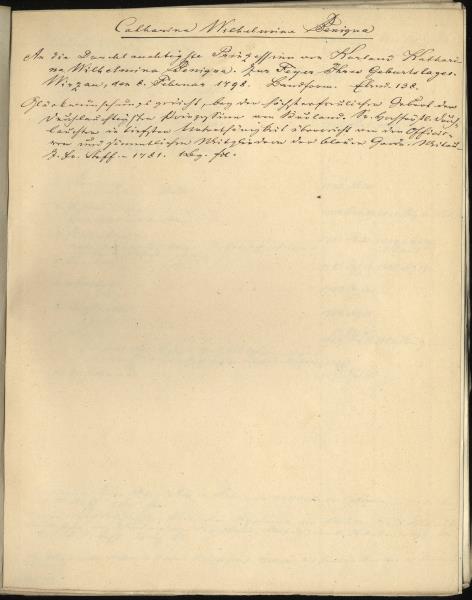 Catharina Wilhelmine Benigna
An die Durchlauchtigste Prinzession von Kurland Kathari-
na Wilhelmina Benigna. Zur Feyer Ihres Geburtstages.
Würzau, den 8. Februar 1798. 138.
Glückwunschungsgedicht, bey der höchsterfreulichen Geburt der
Durchlauchtigsten Prinzessinn von Kurland. Sr. Hochfürstl. Durch-
lauchten in tiefster Unterthänigkeit überreicht von den Officie-
ren und sämmtlichen Mitgliedern der blauen Garde. Mitau
b. J. Fr. Steff. 1781.